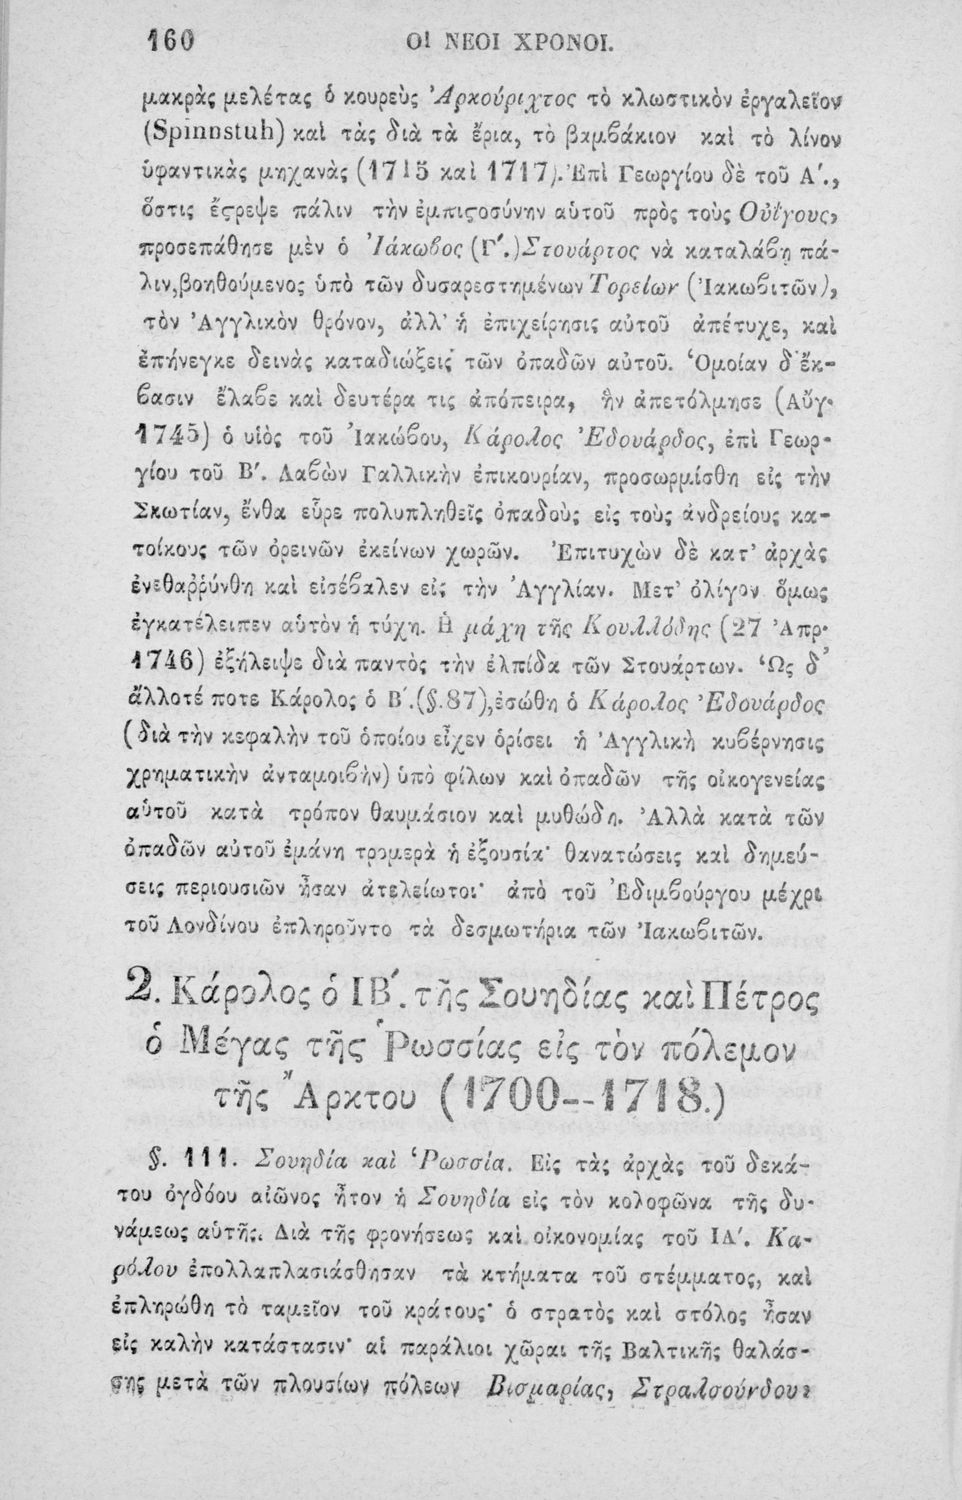 160 ΟΙ ΝΕΟΙ ΧΡΟΝΟΙ.
μακρὰς μελέτας ὁ κουρεὺς Ἀρκούριχτος τὸ κλωστικὸν ἐργαλεῖον
(Spinnstuh) καὶ τὰς διὰ τὰ ἔρια, τὸ βαμβάκιον καὶ τὸ λίνον
ὑφαντικὰς μηχανὰς (1715 καὶ 1717). Ἐπὶ Γεωργίου δὲ τοῦ Α΄.,
ὅστις ἔϛρεψε πάλιν τὴν ἐμπιϛοσύνην αὑτοῦ πρὸς τοὺς Οὐΐγους,
προσεπάθησε μὲν ὁ Ἰάκωβος (Γ΄.) Στουάρτος νὰ καταλάβῃ πά-
λιν, βοηθούμενος ὑπὸ τῶν δυσαρεστημένων Τορείων (Ἰακωβιτῶν),
τὸν Ἀγγλικὸν θρόνον, ἀλλ' ἡ ἐπιχείρησις αὐτοῦ ἀπέτυχε, καὶ
ἐπήνεγκε δεινὰς καταδιώξεις τῶν ὀπαδῶν αὐτοῦ. Ὁμοίαν δ' ἔκ-
βασιν ἔλαβε καὶ δευτέρα τις ἀπόπειρα, ἣν ἀπετόλμησε (Αὔγ.
1745) ὁ υἱὸς τοῦ Ἰακώβου, Κάρολος Ἐδουάρδος, ἐπὶ Γεωρ-
γίου τοῦ Β΄. Λαβὼν Γαλλικὴν ἐπικουρίαν, προσωρμίσθη εἰς τὴν
Σκωτίαν, ἔνθα εὗρε πολυπληθεῖς ὀπαδοὺς εἰς τοὺς ἀνδρείους κα-
τοίκους τῶν ὀρεινῶν ἐκείνων χωρῶν. Ἐπιτυχὼν δὲ κατ' ἀρχὰς
ἐνεθαῤῥύνθη καὶ εἰσέβαλεν εἰς τὴν Ἀγγλίαν. Μετ' ὀλίγον ὅμως
ἐγκατέλειπεν αὐτὸν ἡ τύχη. Ἡ μάχη τῆς Κουλλόδης (27 Ἀπρ.
1746) ἐξήλειψε διὰ παντὸς τὴν ἐλπίδα τῶν Στουάρτων. Ὡς δ'
ἄλλοτέ ποτε Κάρολος ὁ Β΄. (§. 87), ἐσώθη ὁ Κάρολος Ἐδουάρδος
(διὰ τὴν κεφαλὴν τοῦ ὁποίου εἶχεν ὁρίσει ἡ Ἀγγλικὴ κυβέρνησις
χρηματικὴν ἀνταμοιβὴν) ὑπὸ φίλων καὶ ὀπαδῶν τῆς οἰκογενείας
αὑτοῦ κατὰ τρόπον θαυμάσιον καὶ μυθώδη. Ἀλλὰ κατὰ τῶν
ὀπαδῶν αὐτοῦ ἐμάνη τρομερὰ ἡ ἐξουσία· θανατώσεις καὶ δημεύ-
σεις περιουσιῶν ἦσαν ἀτελείωτοι· ἀπὸ τοῦ Ἐδιμβούργου μέχρι
τοῦ Λονδίνου ἐπληροῦντο τὰ δεσμωτήρια τῶν Ἰακωβιτῶν.
2. Κάρολος ὁ ΙΒ΄. τῆς Σουηδίας καὶ Πέτρος
ὁ Μέγας τῆς Ῥωσσίας εἰς τὸν πόλεμον
τῆς Ἄρκτου (1700--1718.)
§. 111. Σουηδία καὶ Ῥωσσία. Εἰς τὰς ἀρχὰς τοῦ δεκά-
του ὀγδόου αἰῶνος ἦτον ἡ Σουηδία εἰς τὸν κολοφῶνα τῆς δυ-
νάμεως αὑτῆς. Διὰ τῆς φρονήσεως καὶ οἰκονομίας τοῦ ΙΑ΄. Κα-
ρόλου ἐπολλαπλασιάσθησαν τὰ κτήματα τοῦ στέμματος, καὶ
ἐπληρώθη τὸ ταμεῖον τοῦ κράτους· ὁ στρατὸς καὶ στόλος ἦσαν
εἰς καλὴν κατάστασιν· αἱ παράλιοι χῶραι τῆς Βαλτικῆς θαλάσ-
σης μετὰ τῶν πλουσίων πόλεων Βισμαρίας, Στραλσούνδου,